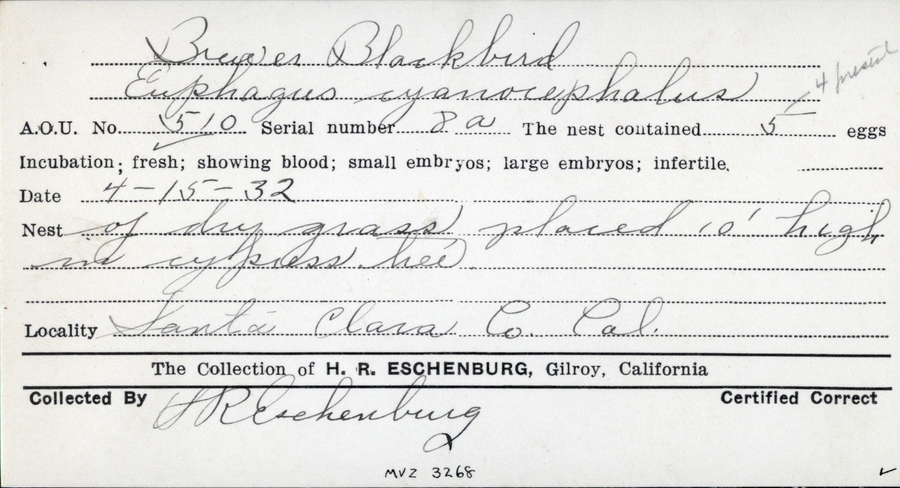 Brewer Blackbird
Euphagus cyanocephalus
4 present
A.O.U. No. 510 Serial number 8a The nest contained 5 eggs
Incubation; fresh; showing blood; small embryos; large embryos; infertile.
Date 4-15-32
Nest of dry grass placed 10' high
in cypress tree
Locality Santa Clara Co. Cal.
The Collection of H. R. ESCHENBURG, Gilroy, California
Collected By HR Eschenburg Certified Correct
MVZ 3268